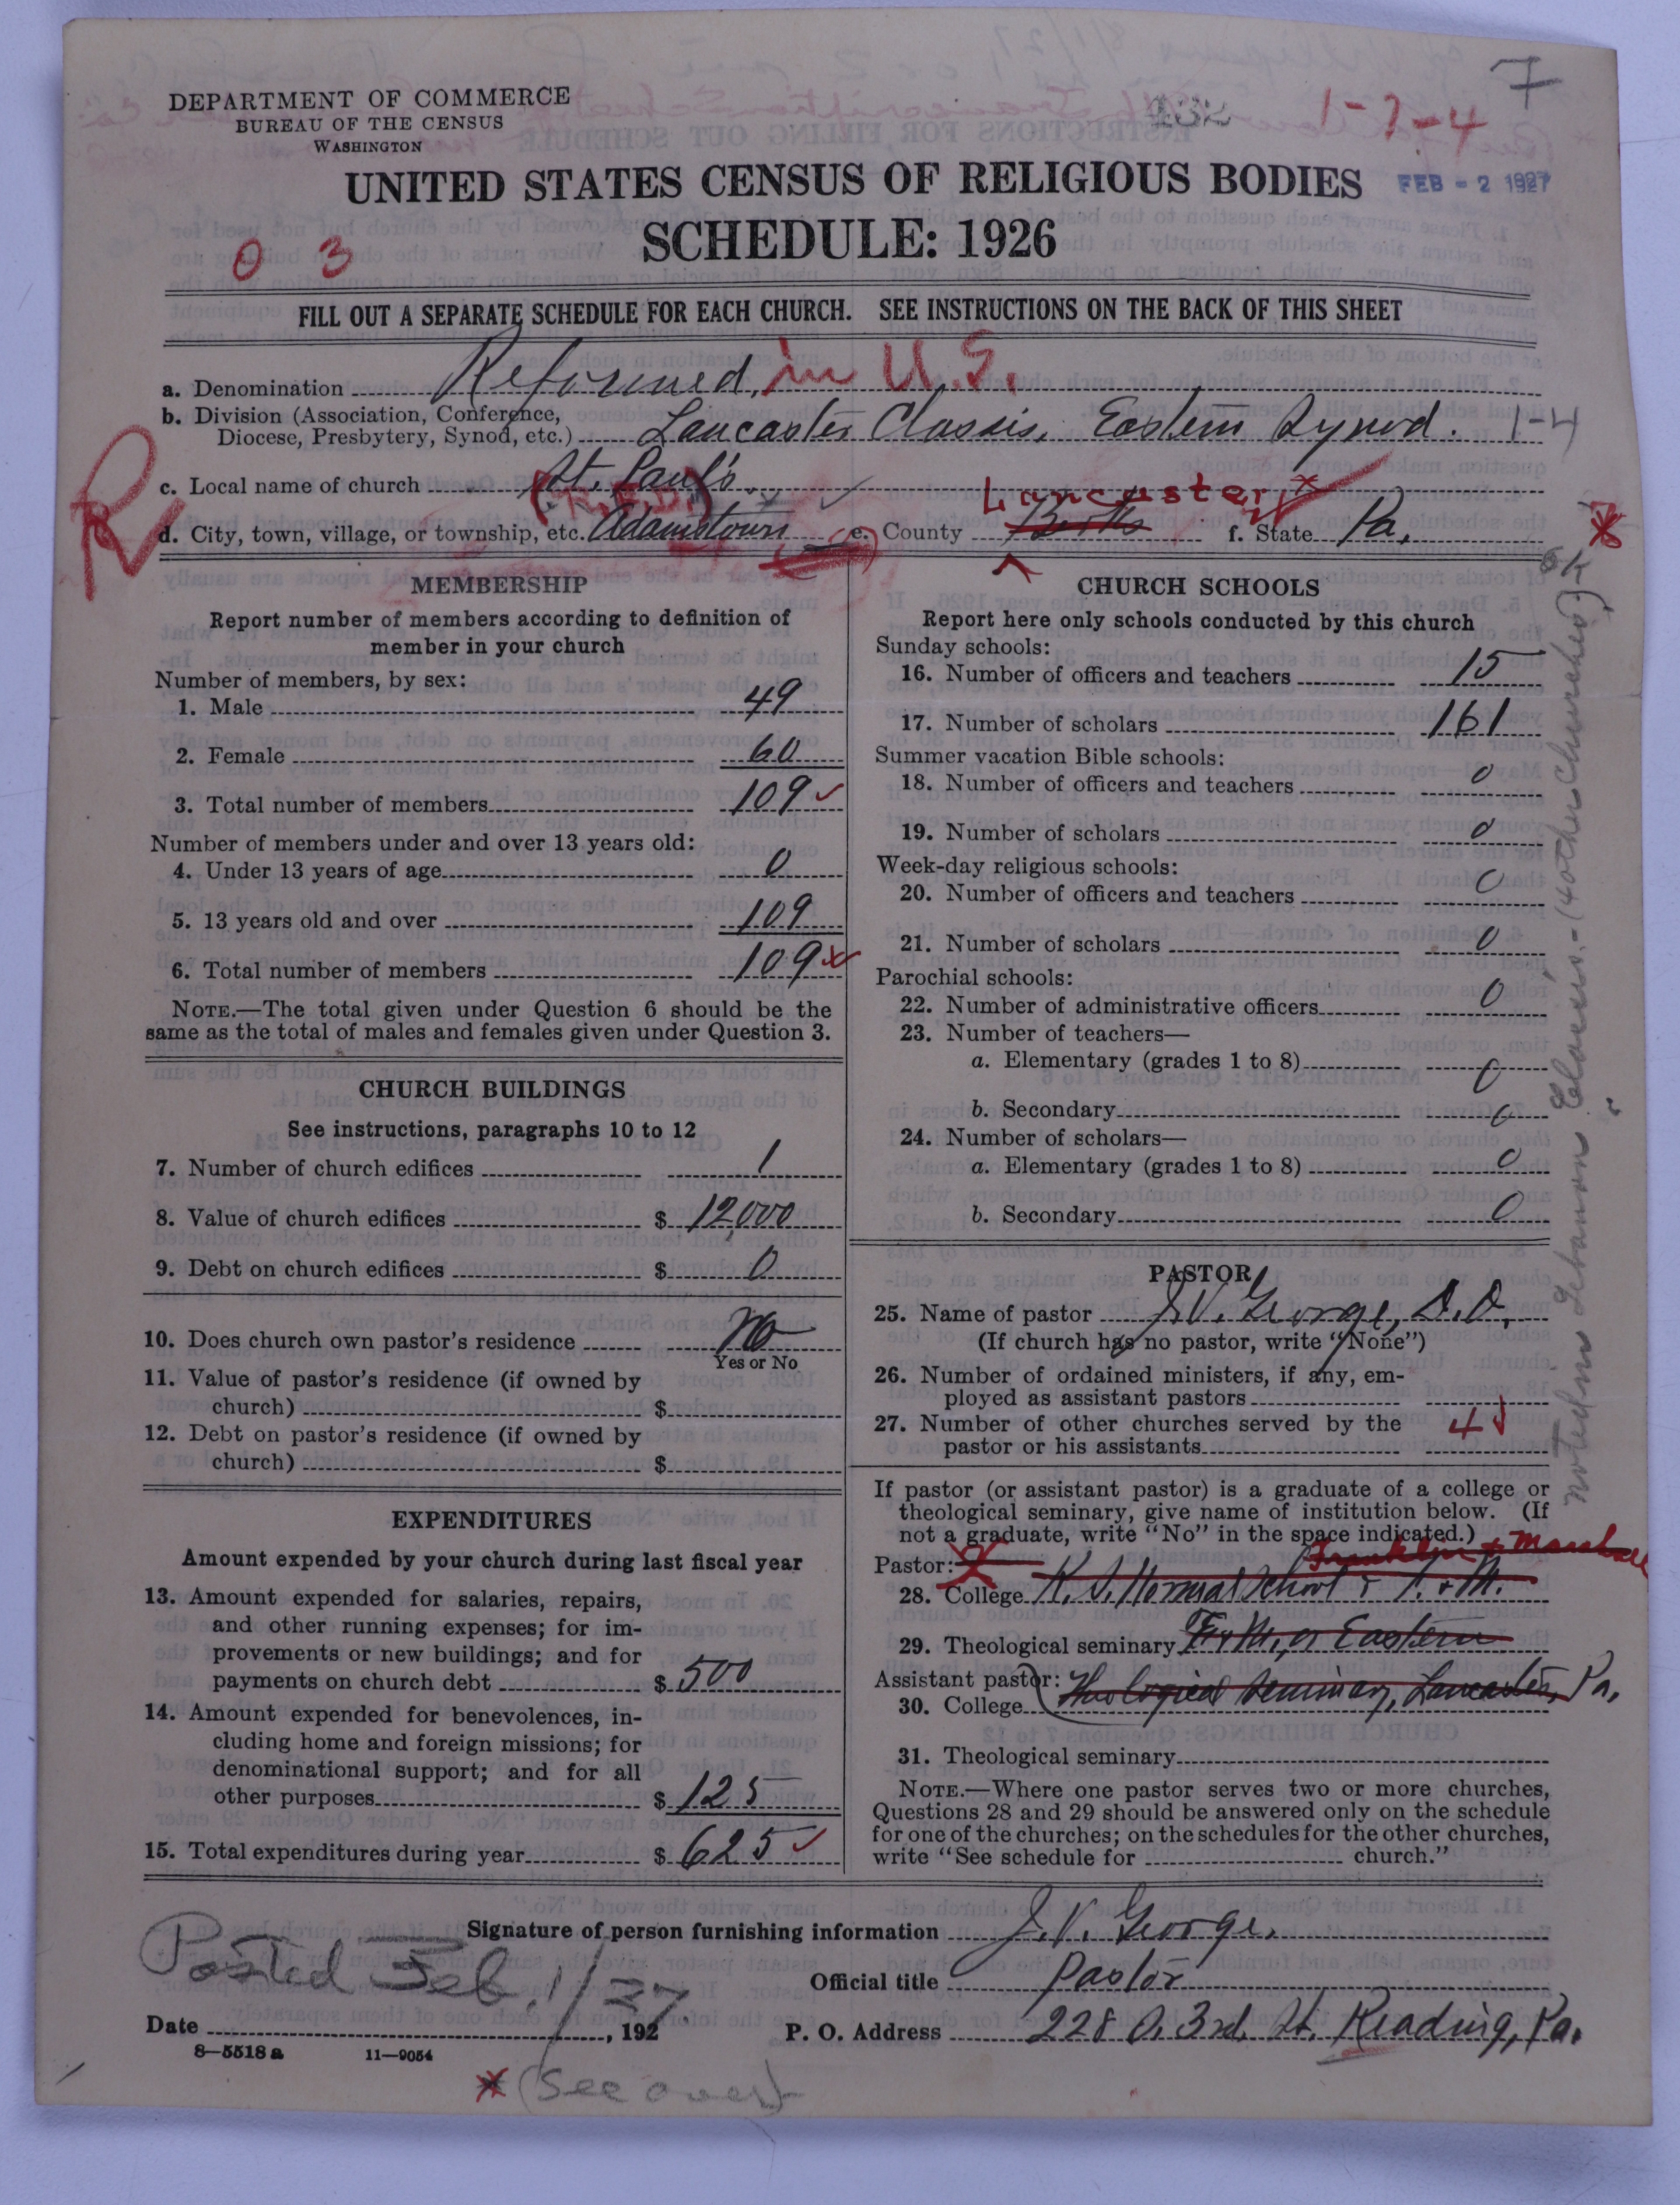 7
DEPARTMENT OF COMMERCE
BUREAU OF THE CENSUS
WASHINGTON
1-7-4
UNITED STATES CENSUS OF RELIGIOUS BODIES
FEB - 2 1927
SCHEDULE: 1926
0 3
FILL OUT A SEPARATE SCHEDULE FOR EACH CHURCH. SEE INSTRUCTIONS ON THE BACK OF THIS SHEET
a. Denomination Reformed, in U.S.
b. Division (Association, Conference,
Diocese, Presbytery, Synod, etc.) Lancaster Classis, Eastern Synod. 1-4
c. Local name of church St. Paul's
Lancaster
d. City, town, village, or township, etc. Adamstown e. County Berks f. State Pa.
R
MEMBERSHIP
Report number of members according to definition of
member in your church
Number of members, by sex:
1. Male 49
2. Female 60
3. Total number of members 109
Number of members under and over 13 years old:
4. Under 13 years of age 0
5. 13 years old and over 109
6. Total number of members 109
NOTE.—The total given under Question 6 should be the
same as the total of males and females given under Question 3.
CHURCH BUILDINGS
See instructions, paragraphs 10 to 12
7. Number of church edifices 1
8. Value of church edifices $ 12,000
9. Debt on church edifices $ 0
10. Does church own pastor's residence No
Yes or No
11. Value of pastor's residence (if owned by
church) $
12. Debt on pastor's residence (if owned by
church) $
EXPENDITURES
Amount expended by your church during last fiscal year
13. Amount expended for salaries, repairs,
and other running expenses; for im-
provements or new buildings; and for
payments on church debt $ 500
14. Amount expended for benevolences, in-
cluding home and foreign missions; for
denominational support; and for all
other purposes $ 125
15. Total expenditures during year $ 625
CHURCH SCHOOLS
Report here only schools conducted by this church
Sunday schools:
16. Number of officers and teachers 15
17. Number of scholars 161
Summer vacation Bible schools:
18. Number of officers and teachers 0
19. Number of scholars 0
Week-day religious schools:
20. Number of officers and teachers 0
21. Number of scholars 0
Parochial schools:
22. Number of administrative officers 0
23. Number of teachers—
a. Elementary (grades 1 to 8) 0
b. Secondary 0
24. Number of scholars—
a. Elementary (grades 1 to 8) 0
b. Secondary 0
PASTOR
25. Name of pastor J.V. George, D.D.
(If church has no pastor, write "None")
26. Number of ordained ministers, if any, em-
ployed as assistant pastors
27. Number of other churches served by the 4
pastor or his assistants
If pastor (or assistant pastor) is a graduate of a college or
theological seminary, give name of institution below. (If
not a graduate, write "No" in the space indicated.)
Pastor: Franklin + Marshall
28. College K. S. Normal School + F. + M.
29. Theological seminary F. + M., or Eastern
Assistant pastor:
30. College Theological Seminary, Lancaster, Pa.
31. Theological seminary
NOTE.—Where one pastor serves two or more churches,
Questions 28 and 29 should be answered only on the schedule
for one of the churches; on the schedules for the other churches,
write "See schedule for church."
noted in Lebanon Classis.- (4 other churches) ok
Signature of person furnishing information J. V. George.
Posted Feb. 1/27.
Official title Pastor
Date , 192
P. O. Address 228 S. 3rd. St. Reading, Pa.
8-5518 a 11-9054
(See over)